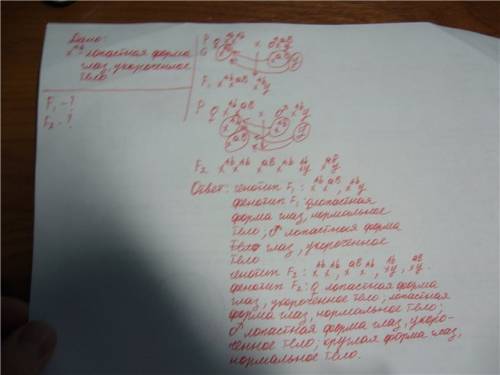 Дано:
x^Ab - лопастная форма
глаз, укороченное
тело
F₁ - ?
F₂ - ?
P ♀ x^Ab x^Ab × ♂ x^aB y
G x^Ab x^aB y
F₁ x^Ab x^aB, x^Ab y
P ♀ x^Ab x^aB × ♂ x^Ab y
x^Ab x^aB x^Ab y
F₂ x^Ab x^Ab x^aB x^Ab x^Ab y x^aB y
Ответ: генотип F₁: x^Ab x^aB, x^Ab y
фенотип F₁: ♀ лопастная
форма глаз, нормальное
тело; ♂ лопастная форма
глаз, укороченное
тело
генотип F₂: x^Ab x^Ab, x^aB x^Ab, x^Ab y, x^aB y.
фенотип F₂: ♀ лопастная форма
глаз, укороченное тело; лопастная
форма глаз, нормальное тело;
♂ лопастная форма глаз, укоро-
ченное тело; круглая форма глаз,
нормальное тело.